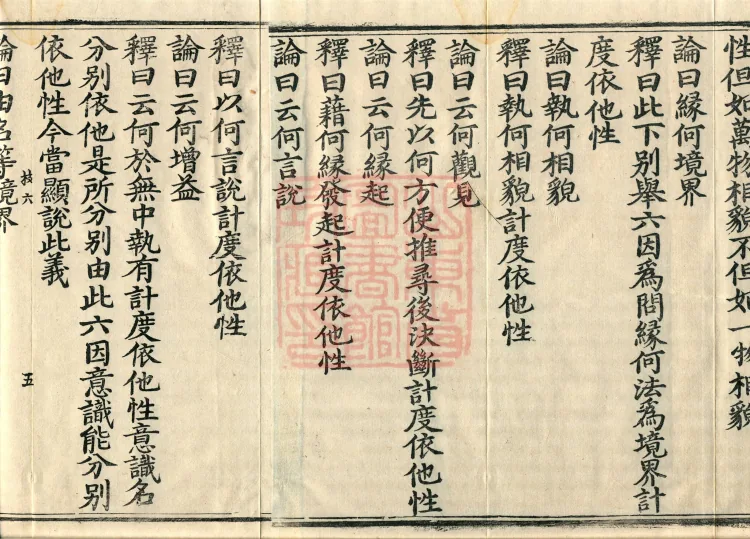 性但如萬物相貌不但如一物相貌
論曰緣何境界
釋曰此下別舉六因爲問緣何法爲境界計
度依他性
論曰執何相貌
釋曰執何相貌計度依他性
論曰云何觀見
釋曰先以何方便推尋後決斷計度依他性
論曰云何緣起
釋曰藉何緣發起計度依他性
論曰云何言說
釋曰以何言說計度依他性
論曰云何增益
釋曰云何於無中執有計度依他性意識名
分別依他是所分別由此六因意識能分別
依他性今當顯說此義
六 五
論曰由名等境界